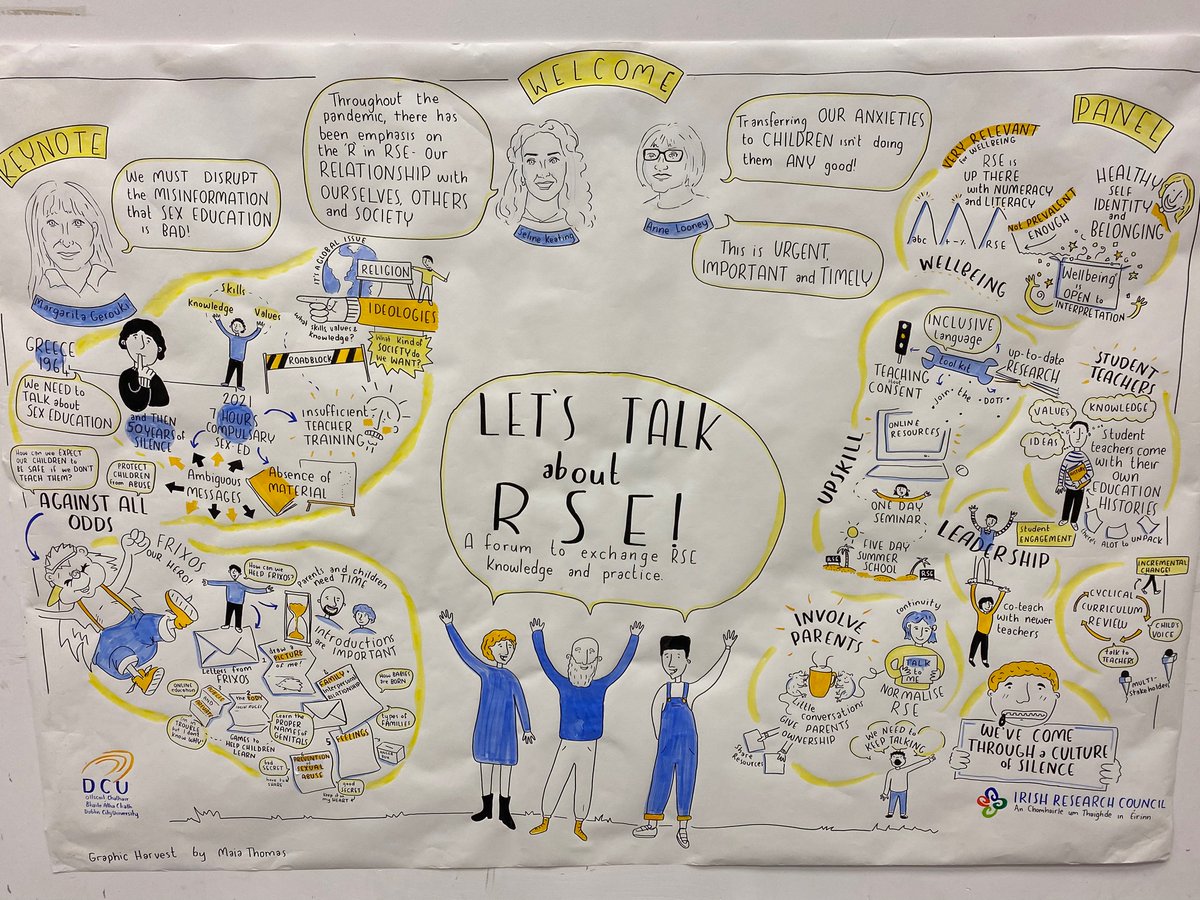 WELCOME
KEYNOTE
Margarita Gerouki
We MUST DISRUPT
the MISINFORMATION
that SEX EDUCATION
is BAD!
Throughout the
pandemic, there has
been emphasis on
the 'R' in RSE - Our
RELATIONSHIP with
OURSELVES, OTHERS
and SOCIETY
Seline Keating
Anne Looney
Transferring OUR ANXIETIES
to CHILDREN isn't doing
them ANY good!
This is URGENT,
IMPORTANT and TIMELY
PANEL
VERY RELEVANT
for WELLBEING
RSE is
UP THERE
with NUMERACY
and LITERACY
abc
+-%
RSE
WELLBEING
NOT PREVALENT
ENOUGH
HEALTHY
SELF
IDENTITY
and
BELONGING
'Wellbeing'
is
OPEN to
INTERPRETATION
IT'S A GLOBAL ISSUE
RELIGION
IDEOLOGIES
Skills
Knowledge
Values
What skills values &
knowledge?
What kind of
SOCIETY do
we WANT?
ROADBLOCK
GREECE
1964
We NEED to
TALK about
SEX EDUCATION
and THEN
50 YEARS of
SILENCE
2021
7 HOUR
COMPULSARY
SEX-ED
INSUFFICIENT
TEACHER
TRAINING
Absence of
MATERIAL
Ambiguous
MESSAGES
How can we EXPECT
OUR CHILDREN to
BE SAFE if we DON'T
TEACH THEM?
PROTECT
CHILDREN
from ABUSE
AGAINST ALL
ODDS
FRIXOS
OUR HERO!
How can we
HELP FRIXOS?
Parents and children
need TIME
INTRODUCTIONS
are IMPORTANT
Letters from
FRIXOS
1
draw a
PICTURE
of me!
2
THE BODY
FAMILY &
interpersonal
RELATIONSHIP
How BABIES
are BORN
types of
FAMILIE!
ONLINE
education
I'm in
TROUBLE
but I don't
know WHY!
Learn the
PROPER
NAMES of
GENITALS
GAMES to
HELP CHILDREN
LEARN
5
FEELINGS
bad
SECRET
have to
SHARE
PREVENTION
of SEXUAL
ABUSE
good
SECRET
keep it in
my HEART
LET'S TALK
about
RSE!
A forum to exchange RSE
Knowledge and practice.
INCLUSIVE
Language
tool kit
up-to-date
RESEARCH
TEACHING
CONSENT
join the DOTS
UPSKILL
ONLINE
RESOURCES
ONE DAY
SEMINAR
FIVE DAY
SUMMER
SCHOOL
RSE
RSE
STUDENT
TEACHERS
VALUES
KNOWLEDGE
IDEAS
Student
teachers come
with their
own
EDUCATION
HISTORIES
there's ALOT to UNPACK
LEADERSHIP
Student
ENGAGEMENT
co-teach
with newer
teachers
INCREMENTAL
CHANGE!
CYCLICAL
CURRICULUM
REVIEW
CHILD'S
VOICE
talk to
TEACHERS
MULTI-
Stakeholders
INVOLVE
PARENTS
Little
conversations
GIVE
PARENTS
OWNERSHIP
Share
Resources
continuity
TALK
to
ME
NORMALISE
RSE
We NEED to
KEEP TALKING
WE'VE COME
THROUGH a CULTURE
of SILENCE
DCU
Ollscoil Chathair
Bhaile Átha Cliath
Dublin City University
IRISH RESEARCH COUNCIL
An Chomhairle um Thaighde in Éirinn
Graphic Harvest by Maia Thomas